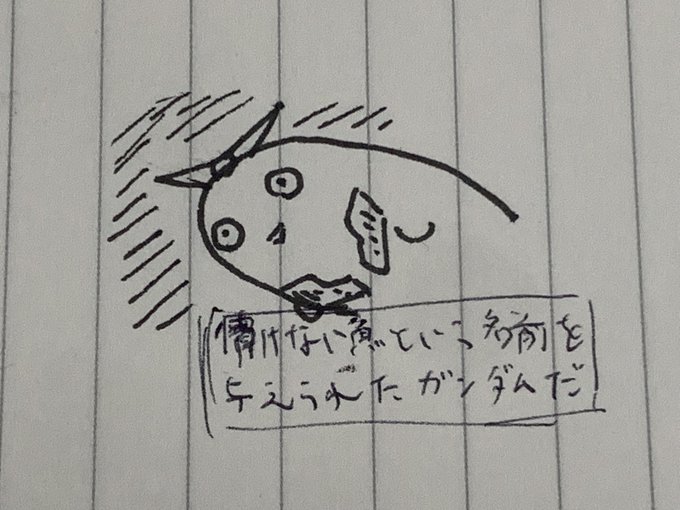 情けない魚という名前を
与えられたガンダムだ